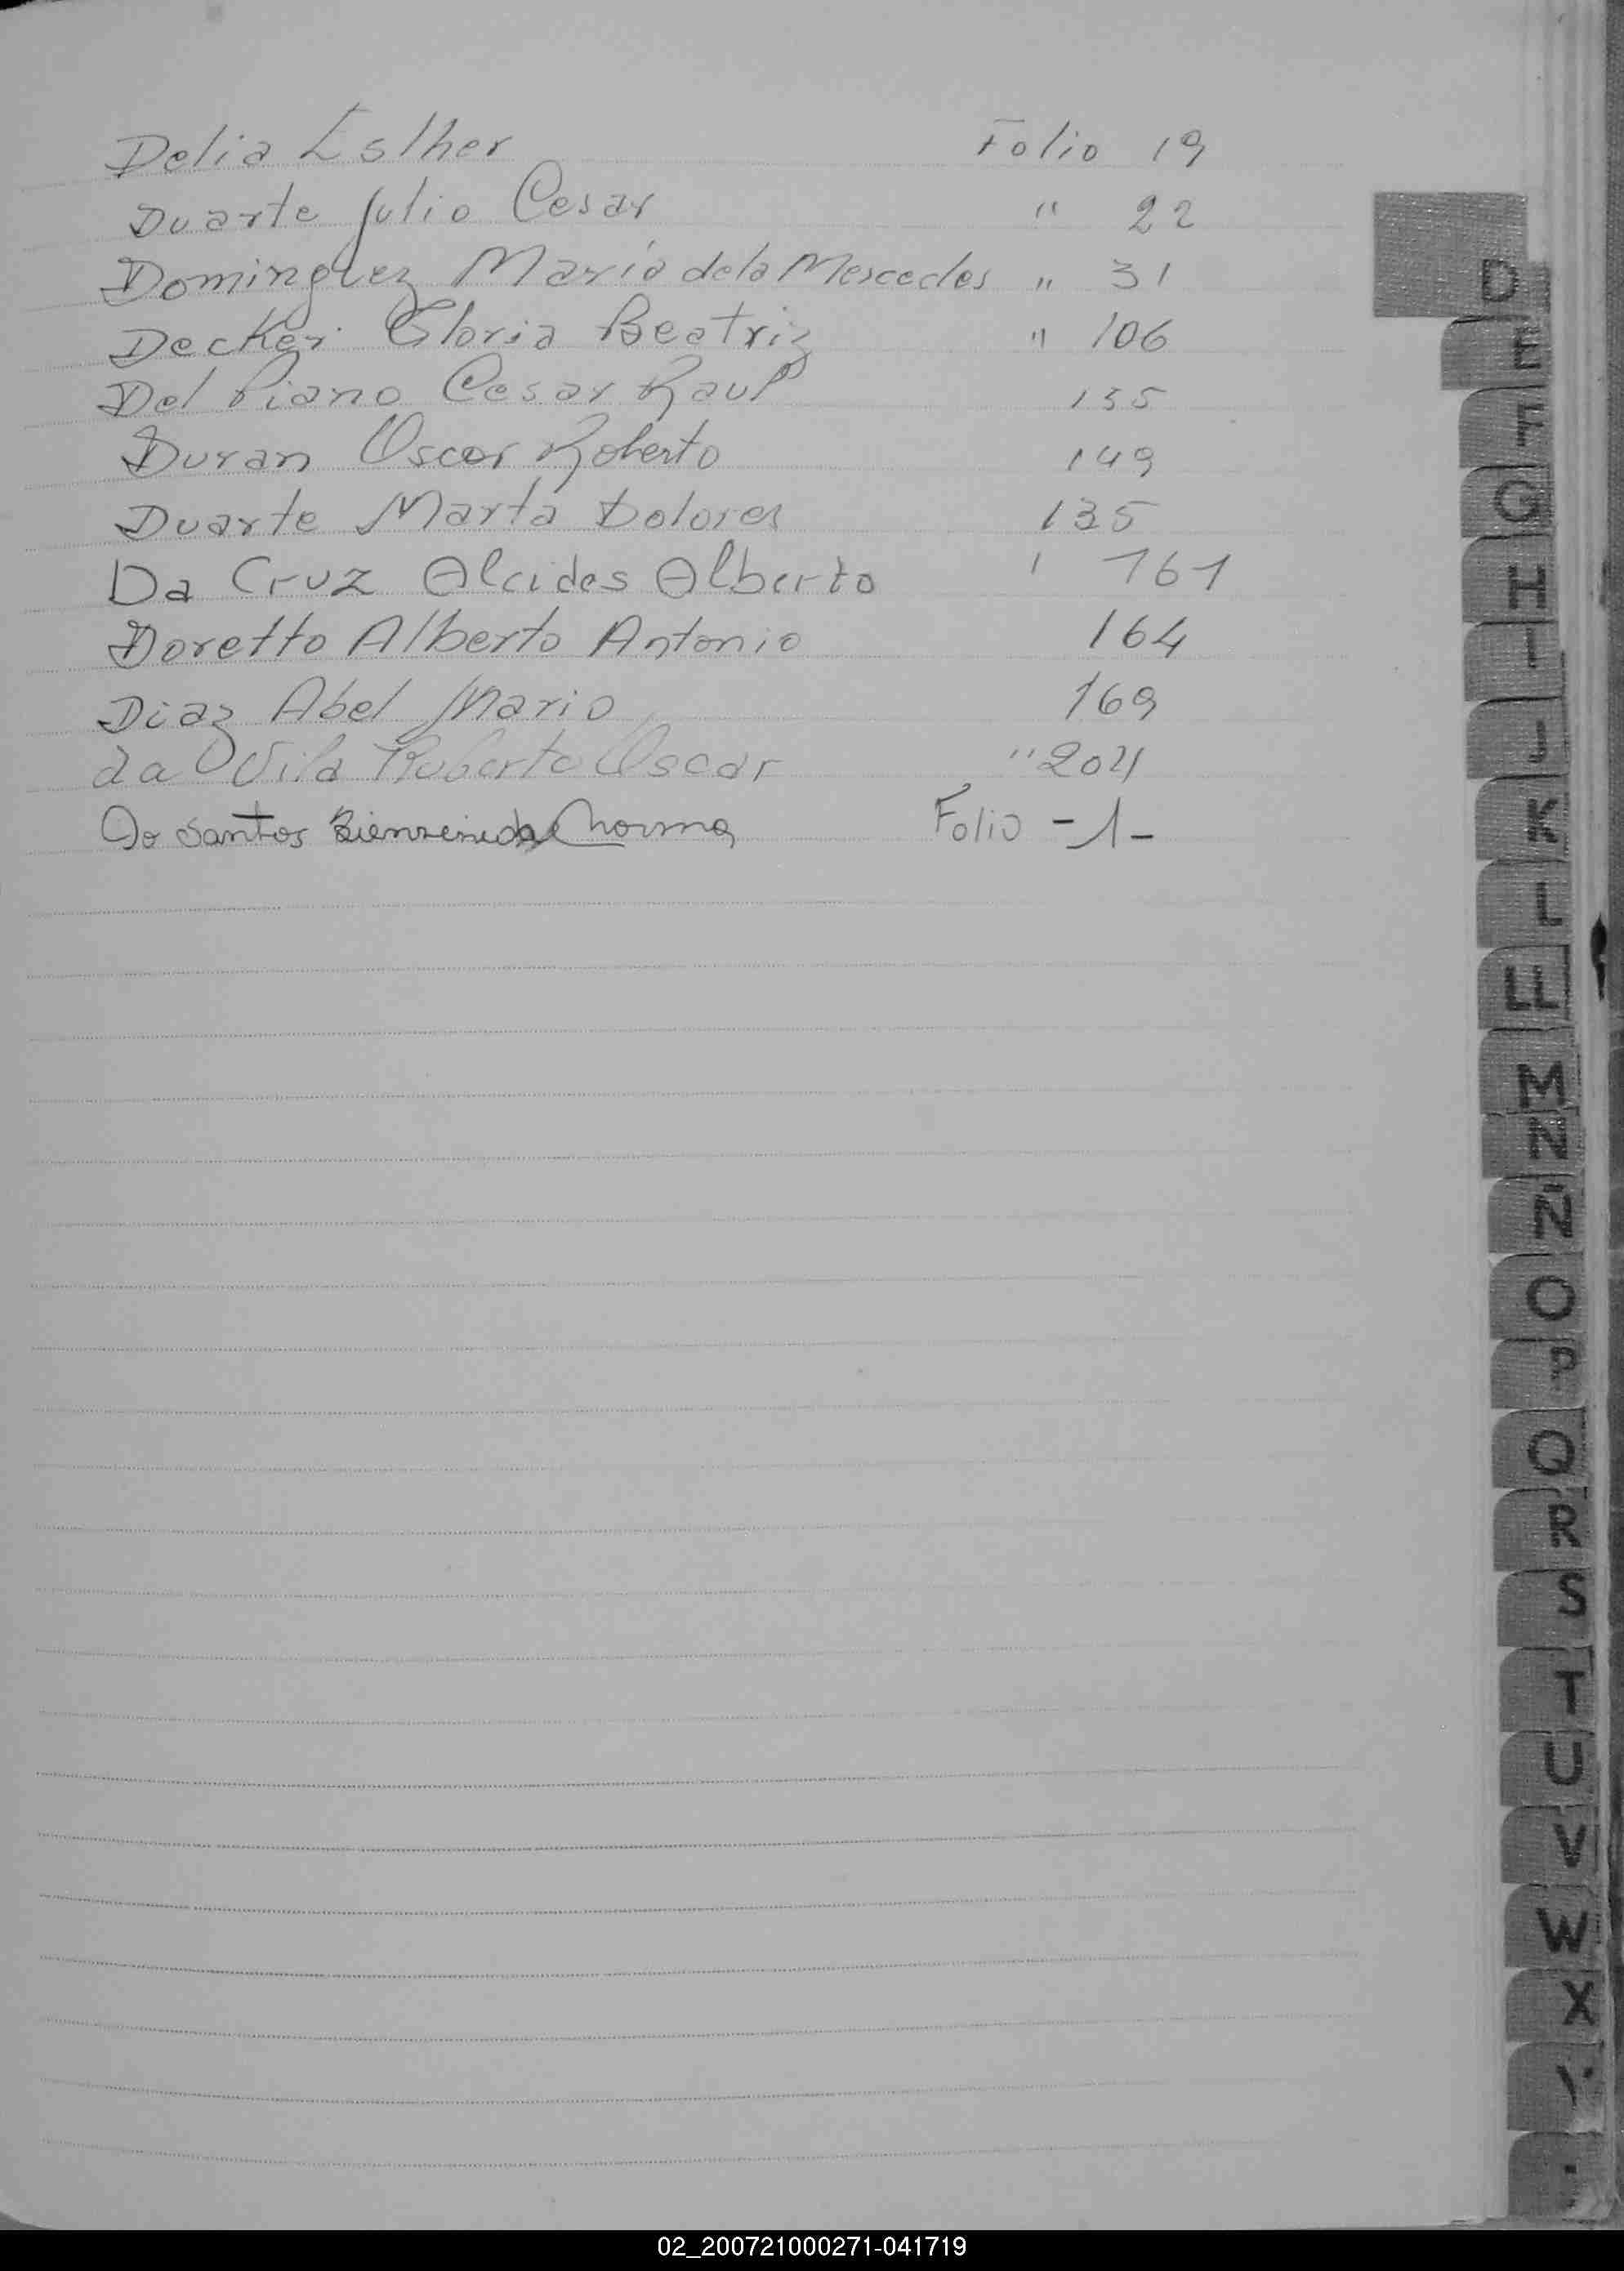 Delia Esther Folio 19
Duarte Julio Cesar " 22
Dominguez María de la Mercedes " 31
Decker Gloria Beatriz " 106
Del Piano Cesar Raul 135
Duran Oscar Roberto 149
Duarte Marta Dolores 135
Da Cruz Alcides Alberto ' 161
Doretto Alberto Antonio 164
Diaz Abel Mario 169
da Vila Roberto Oscar " 204
Do Santos Bienvenida Norma Folio - 1 -
D
E
F
G
H
I
J
K
L
LL
M
N
Ñ
O
P
Q
R
S
T
U
V
W
X
Y
02_200721000271-041719